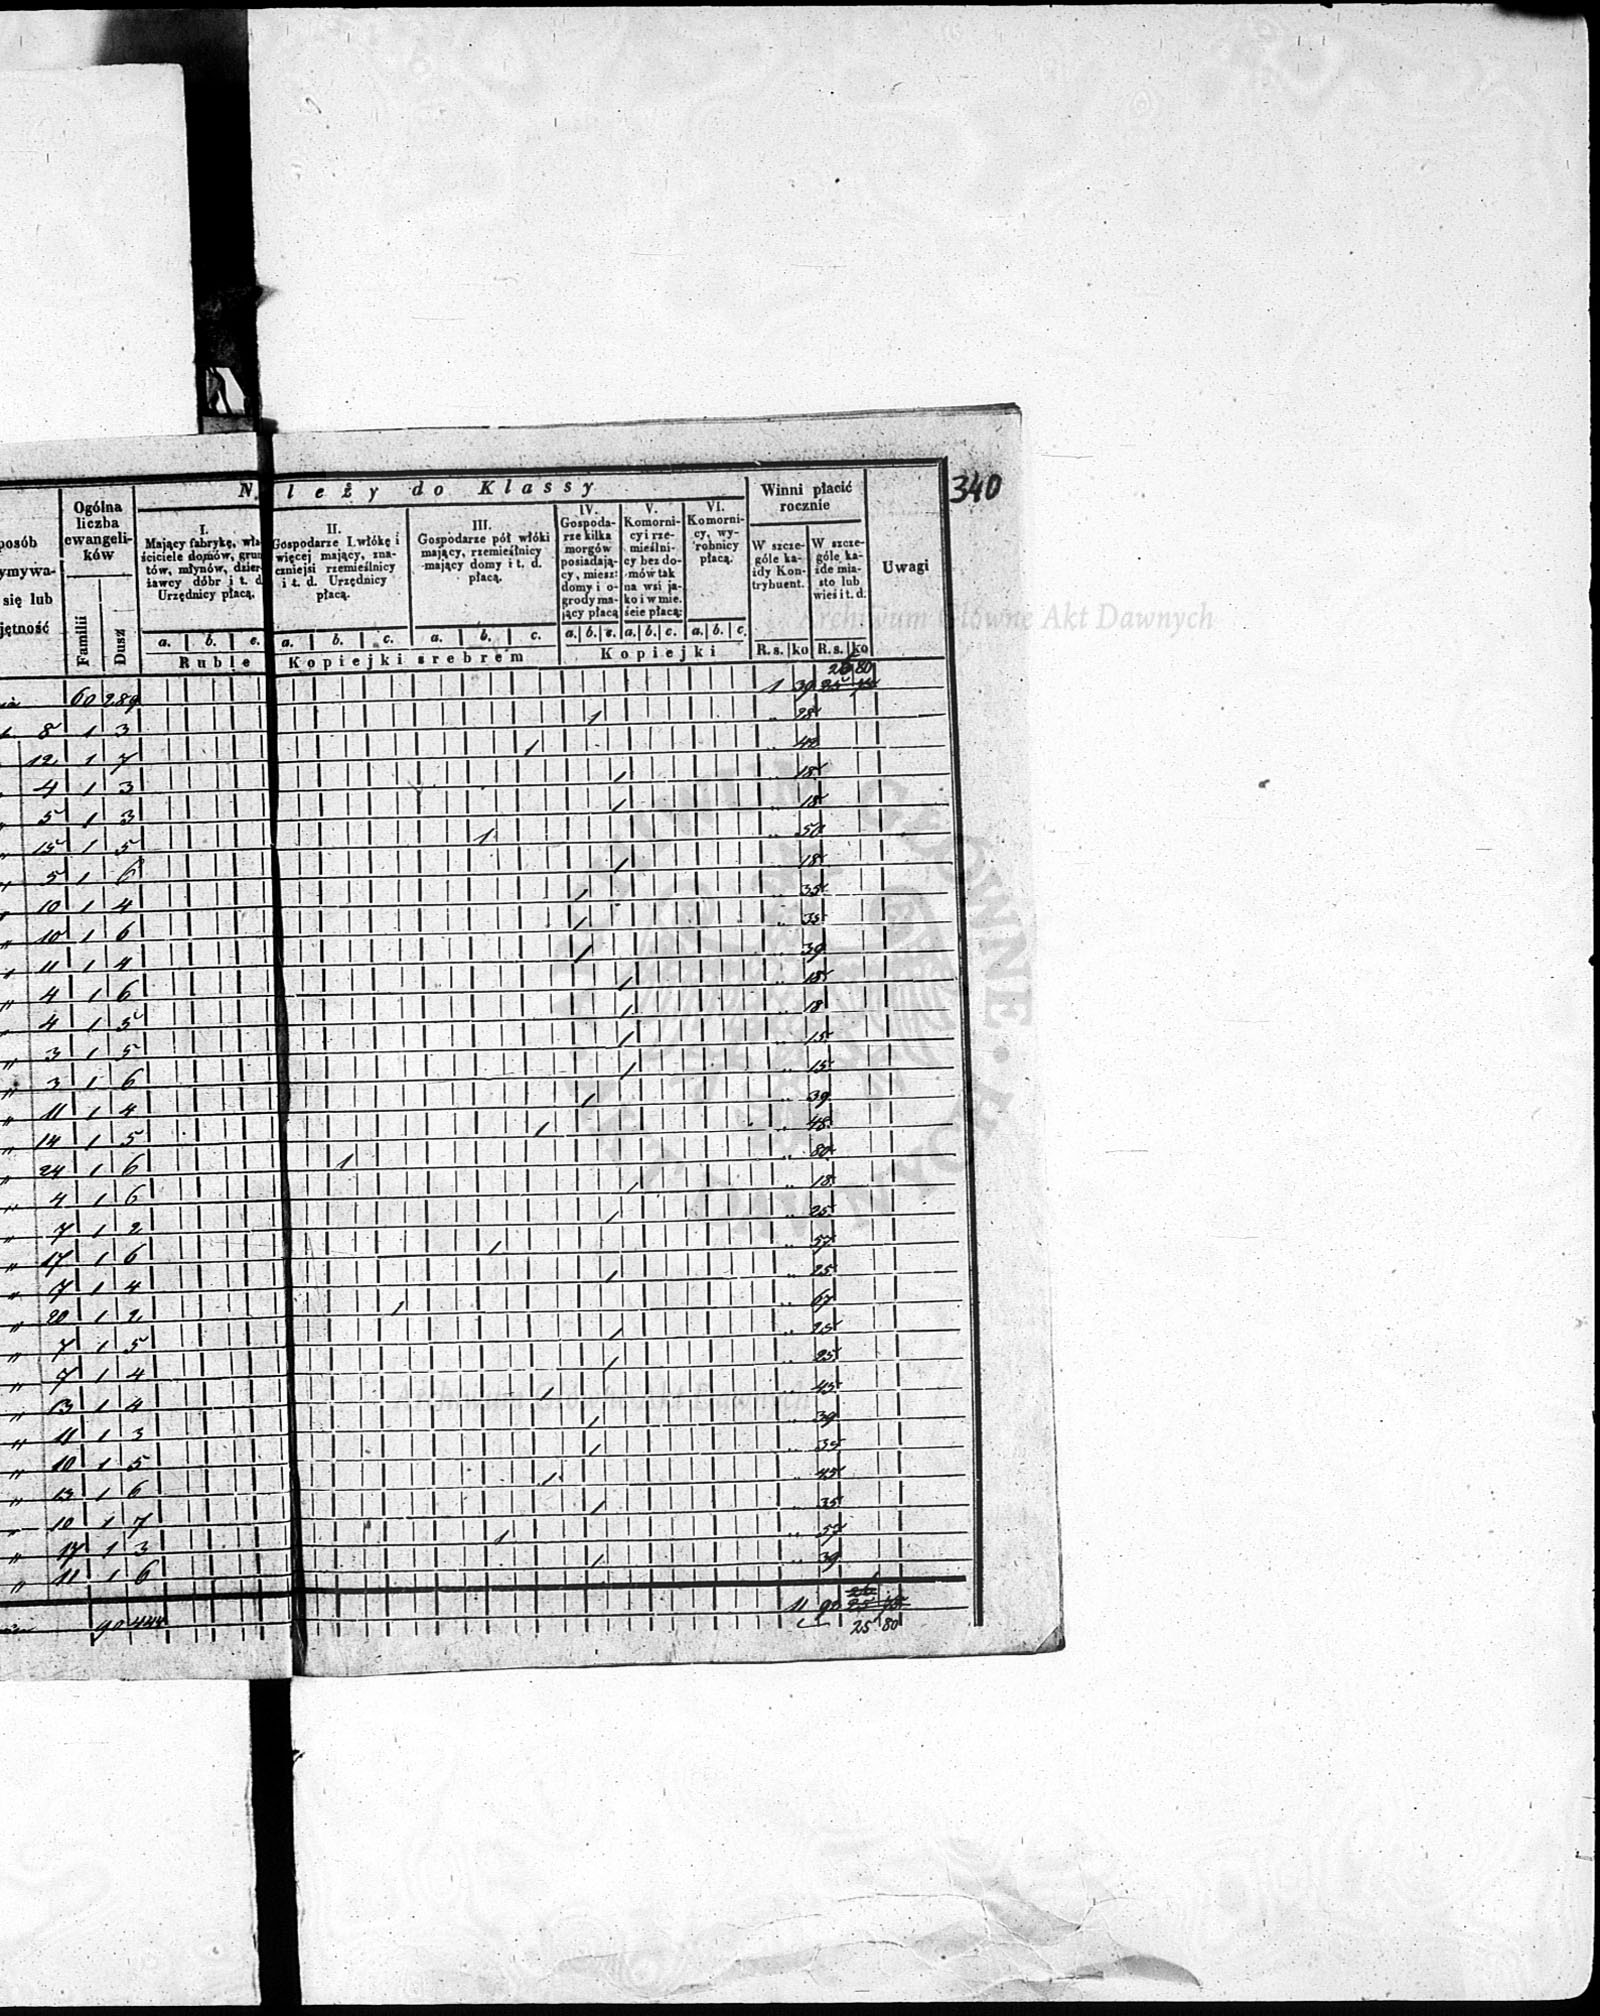 340
N leży do Klassy
Ogólna liczba ewangelików
Winni płacić rocznie
Uwagi
posób
ymywa-
się lub
jętność
Familii
Dusz
I. Mający fabrykę, wła-
ściciele domów, grun
tów, młynów, dzier-
żawcy dóbr i t. d
Urzędnicy płacą.
II.
Gospodarze I. włókę i
więcej mający, zna-
czniejsi rzemieślnicy
i t. d. Urzędnicy
płacą.
III.
Gospodarze pół włóki
mający, rzemieślnicy
mający domy i t. d.
płacą.
IV.
Gospoda-
rze kilka
morgów
posiadają-
cy, miesz:
domy i o-
grody ma-
jący płacą
V.
Komorni-
cy i rze-
mieślni-
cy bez do-
mów tak
na wsi ja-
ko i w mie.
ście płacą:
VI.
Komorni-
cy, wy-
robnicy
płacą.
W szcze-
góle ka-
żdy Kon-
trybuent.
W szcze-
góle ka-
żde mia-
sto lub
wieś i t. d.
a. b. c. a. b. c. a. b. c. a. b. c. a. b. c. a. b. c.
Ruble Kopiejki srebrem Kopiejki R. s. ko R. s. ko
26 80
60 289 1 39 25
8 1 3 1 " 28
12 1 7 1 " 48
4 1 3 1 " 18
5 1 3 1 " 18
15 1 5 1 "
5 1 6 1 " 18
10 1 4 1 " 35
10 1 6 1 " 35
11 1 4 1 " 39
4 1 6 1 " 18
4 1 5 1 " 18
3 1 5 1 " 15
3 1 6 1 " 15
11 1 4 1 " 39
14 1 5 1 " 48
24 1 6 1 " 80
4 1 6 1 " 18
7 1 2 1 " 25
17 1 6 1 " 57
7 1 4 1 " 25
20 1 2 1 " 67
7 1 5 1 " 25
7 1 4 1 " 25
13 1 4 1 " 45
11 1 3 1 " 39
10 1 5 1 " 35
13 1 6 1 " 45
10 1 7 1 " 35
17 1 3 1 " 57
11 1 6 1 " 39
90 444 11 90
25 80
Archiwum Główne Akt Dawnych
Archiwum Główne Akt Dawnych